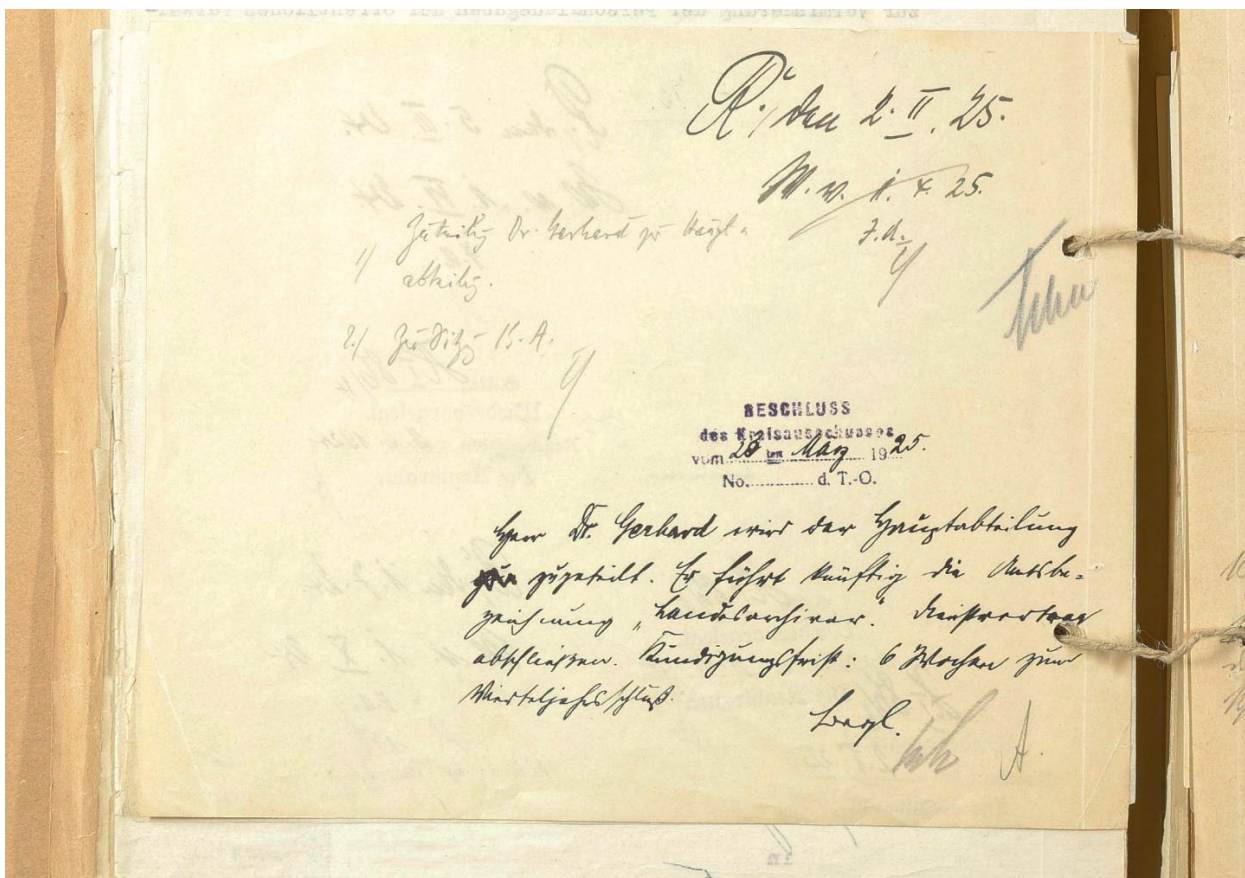 R. / den 2. II. 25.
W. v. 1. 4. 25.
Z. d. A.
1) Zuteilg Dr. Gerhard zur Haupt-
abteilg.
2.) Zur Sitzg K. A.
BESCHLUSS
des Kreisausschusses
vom 28 ten März 1925.
No. d. T.-O.
Herr Dr. Gerhard wird der Hauptabteilung
zugeteilt. Er führt künftig die Amtsbe-
zeichnung „Landesarchivar“. Dienstvertrag
abschließen. Kündigungsfrist: 6 Wochen zum
Vierteljahrsschluß.